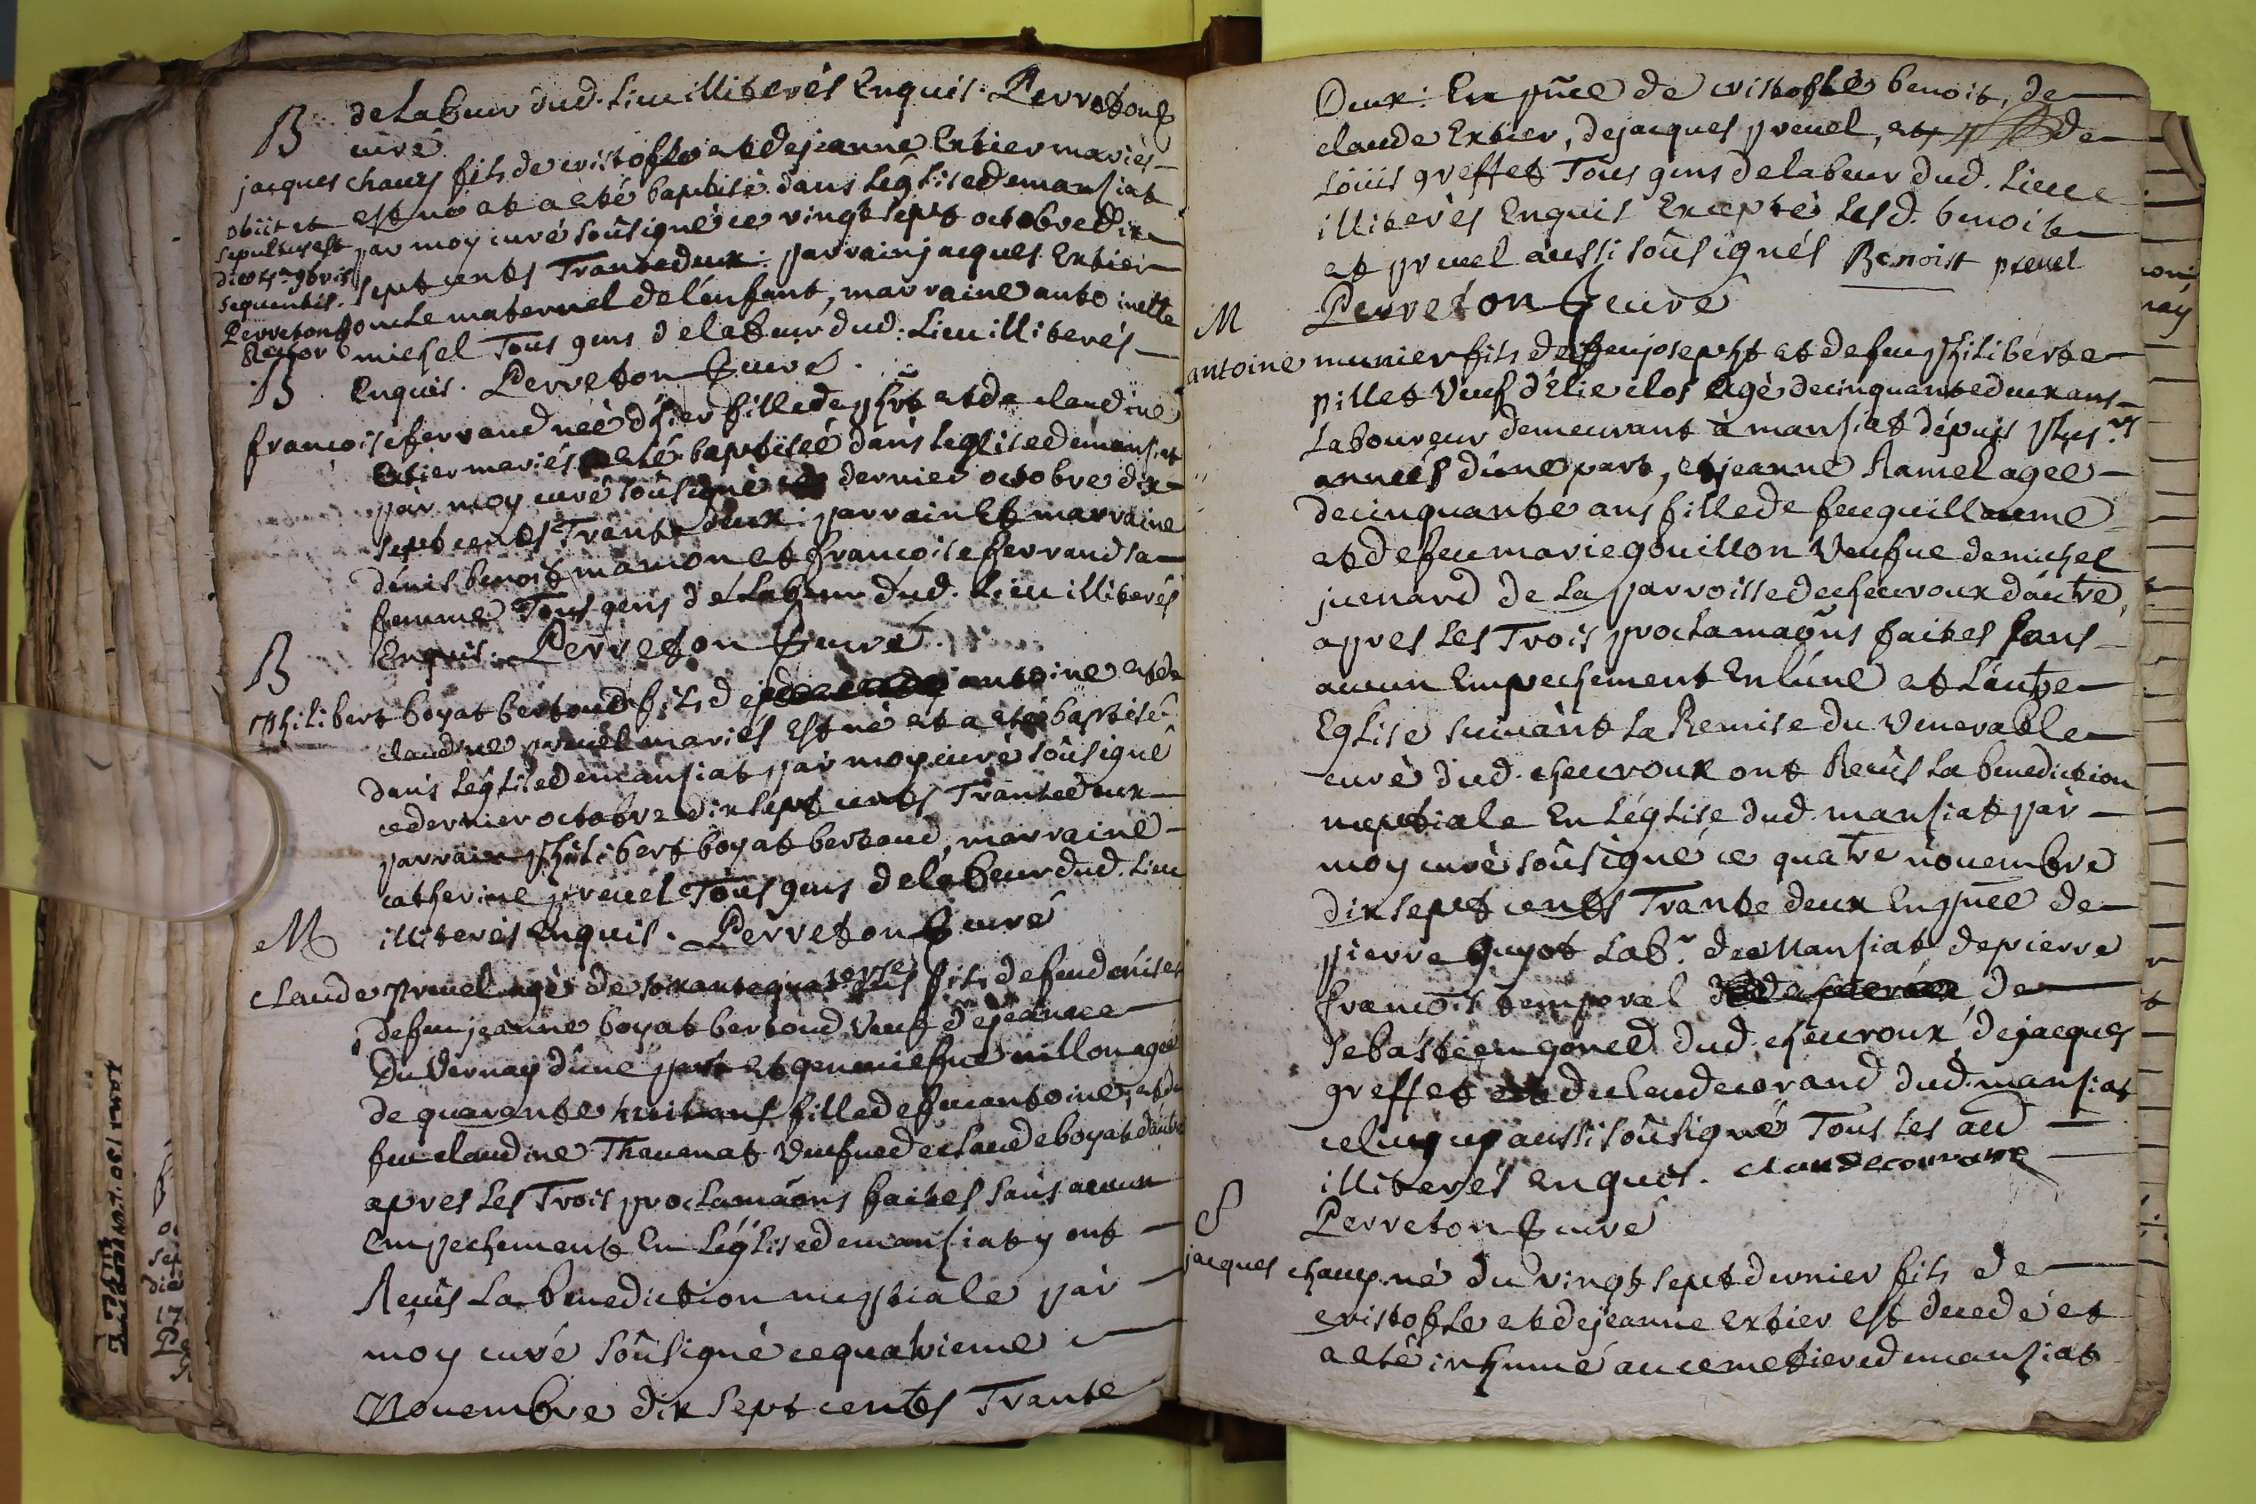 de Labeur dud. Lieu illiterés Enquis. Perreton
curé
B
jacques chaux fils de cristofle et de jeanne Extier mariés
est né et a eté baptisé dans Léglise de mansiat
obiit et
sepultus est
die 15a 9bris
sequentis.
Perreton
Rector
par moy curé soûsigné ce vingt sept octobre dix
sept cents Trante deux. parrain jacques Extier
oncle maternel de l'enfant, marraine antoinette
michel Tous gens de labeur dud. Lieu illiterés
Enquis. Perreton curé.
B
francoise ferrand née d'hier fille de phrt et de claudine
Extier mariés a eté baptisée dans Leglise de mansiat
par moy curé soûsigné ce dernier octobre dix
sept cents Trante deux. parrain Et marraine
denis benoit manion et francoise ferrand sa
femme Tous gens de Labeur dud. Lieu illiterés
Enquis. Perreton curé.
B
Philibert boyat bertoud fils de antoine et de
claudine preuel mariés Est né et a eté baptisé
dans Léglise de mansiat par moy curé soûsigné
ce dernier octobre dix sept cents Trante deux
parrain philibert boyat bertoud, marraine
catherine preuel Tous gens de labeur dud. Lieu
illiterés Enquis. Perreton curé
M
Claude preuel agé de soixante quatorze ans fils de feu denis et
de feu jeanne boyat bertoud veuf de jeanne
Du Vernay d'une part et geneviefue millon agée
de quarante huit ans fille de feu antoine, et de
feu claudine Thevenat veufue de claude boyat d'autre
apres Les Trois proclamaõns faites sans aucun
empechement En Léglise de mansiat y ont
Reçûs La benediction nuptiale par
moy curé soûsigné ce quatrieme
Nouembre dix sept cents Trante
Deux. En pñce de cristofle benoit, de
claude Extier, de jacques preuel, et de
Loüis greffet Tous gens de labeur dud. Lieu
illiterés Enquis Excepté Lesd. benoit
et preuel aussi soûsignés Benoist preuel
Perreton curé
M
antoine munier fils de feu joseph et de feu philiberte
pillet Veuf d'Elie clos agé de cinquante deux ans
Laboureur demeurant à mansiat dépuis plus.rs
années d'une part, et jeanne Ramel agee
de cinquante ans fille de feu guillaume
et de feu marie gouillon Veufue de michel
juenard de La parroisse de cheuroux d'autre,
apres Les Trois proclamaõns faites sans
aucun Empechement En l'une et L'autre
Eglise suivant La Remise du Venerable
curé dud. cheuroux ont Reçûs La benediction
nuptiale En Léglise dud. mansiat par
moy curé soûsigné ce quatre nouembre
dix sept cents Trante deux En pñce de
pierre guyot Lab.r de Mansiat de pierre
francois temporel de
sebastien gonod dud. cheuroux de jacques
greffet de claude corand dud. mansiat
celuy cy aussi soûsigné Tous Les au
illiterés enquis. claude courand
Perreton curé
S
jacques chaux né du vingt sept dernier fils de
cristofle et de jeanne extier est decedé et
a eté inhumé au cemetiere de mansiat